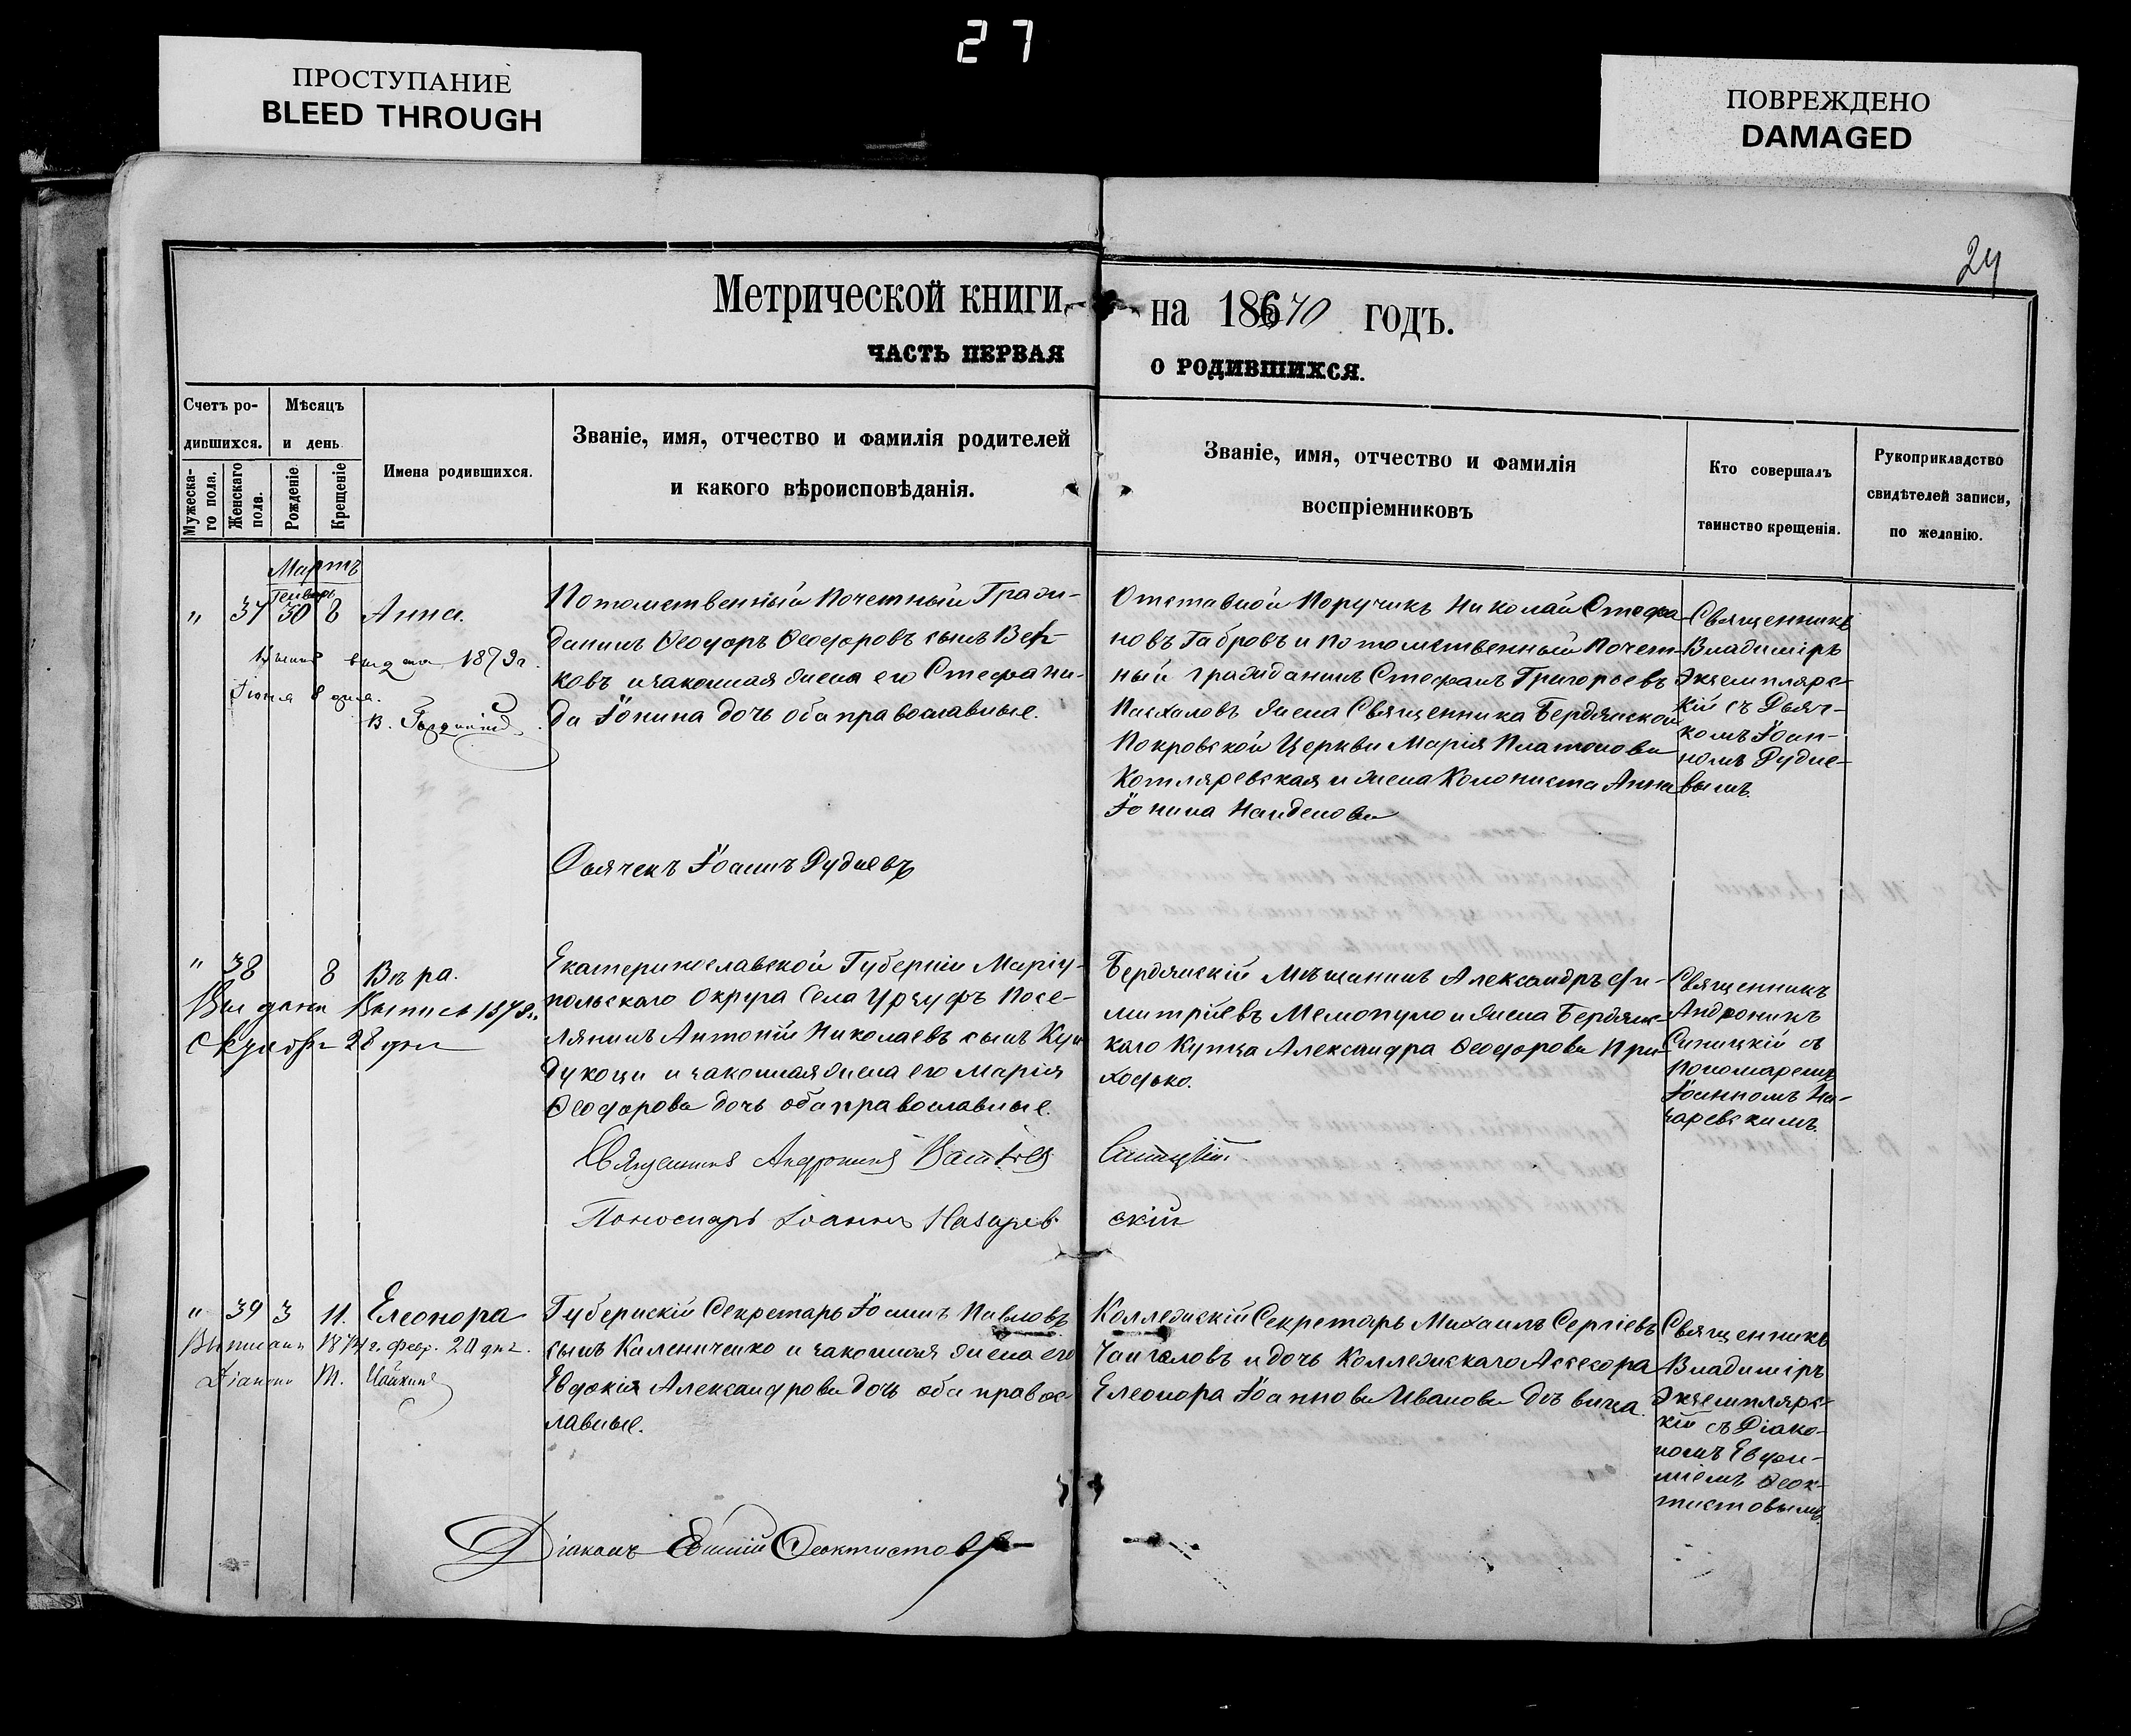 27
ПРОСТУПАНИЕ
BLEED THROUGH
ПОВРЕЖДЕНО
DAMAGED
24
Метрической книги,
на 18670 годъ.
ЧАСТЬ ПЕРВАЯ
О РОДИВШИХСЯ.
Счетъ ро-
дившихся.
Мужеска-
го пола.
Женскаго
пола.
Мѣсяцъ
и день
Рожденіе
Крещеніе
Имена родившихся.
Званіе, имя, отчество и фамилія родителей
и какого вѣроисповѣданія.
Званіе, имя, отчество и фамилія
воспріемниковъ
Кто совершалъ
таинство крещенія.
Рукоприкладство
свидѣтелей записи,
по желанію.
Мартъ
Генварь
" 37 30 8 Анна.
выдана 1879г.
Іюня 8 дня.
В.
Потомственный Почетный Гражд-
данинъ Ѳеодоръ Ѳеодоровъ сынъ
ковъ и законная жена его Стефани-
да Іонина дочь оба православные.
Отставной Поручикъ Николай Стефа-
новъ Габровъ и потомственный Почет-
ный гражданинъ Стефанъ Григорьевъ
Пасхаловъ жена Священника Бердянской
Покровской Церкви Марія Платонова
Котляревская и жена Колониста Анна
Іонина Найденова
Священникъ
Владиміръ
Экземплярс-
кій съ Дьяч-
комъ Іоан-
номъ Рудне-
вымъ.
Дьячекъ Іоаннъ Рудневъ
" 38 8 Вѣра.
Выдана Выпись 187
28 дня
Екатеринославской Губерніи Маріу-
польскаго Округа Села Урзуфъ Посе-
лянинъ Антоній Николаевъ сынъ
и законная жена его Марія
Ѳеодорова дочь оба православные.
Бердянскій Мѣщанинъ Александръ Ди-
митріевъ и жена Бердянс-
каго Купца Александра Ѳеодорова При-
ходько.
Священникъ
Андроникъ
Синицкій съ
Пономаремъ
Іоанномъ На-
заревскимъ.
Священникъ Андроникъ
Синицкій
Пономарь Іоаннъ Назарев-
скій
" 39 3 11. Елеонора
Выписана 1874 г. февр. 20 дня.
Діаконъ М. Чайкинъ
Губернскій Секретарь Іоаннъ Павловъ
сынъ Калениченко и законная жена его
Евдокія Александрова дочь оба правос-
лавные.
Коллежскій Секретарь Михаилъ Сергіевъ
и дочь Коллежскаго Ассесора
Елеонора Іоаннова Иванова дѣвица.
Священникъ
Владиміръ
Экземплярс-
кій съ Діако-
номъ Евфи-
міемъ Ѳеок-
тистовымъ.
Діаконъ Ѳеоктистовъ